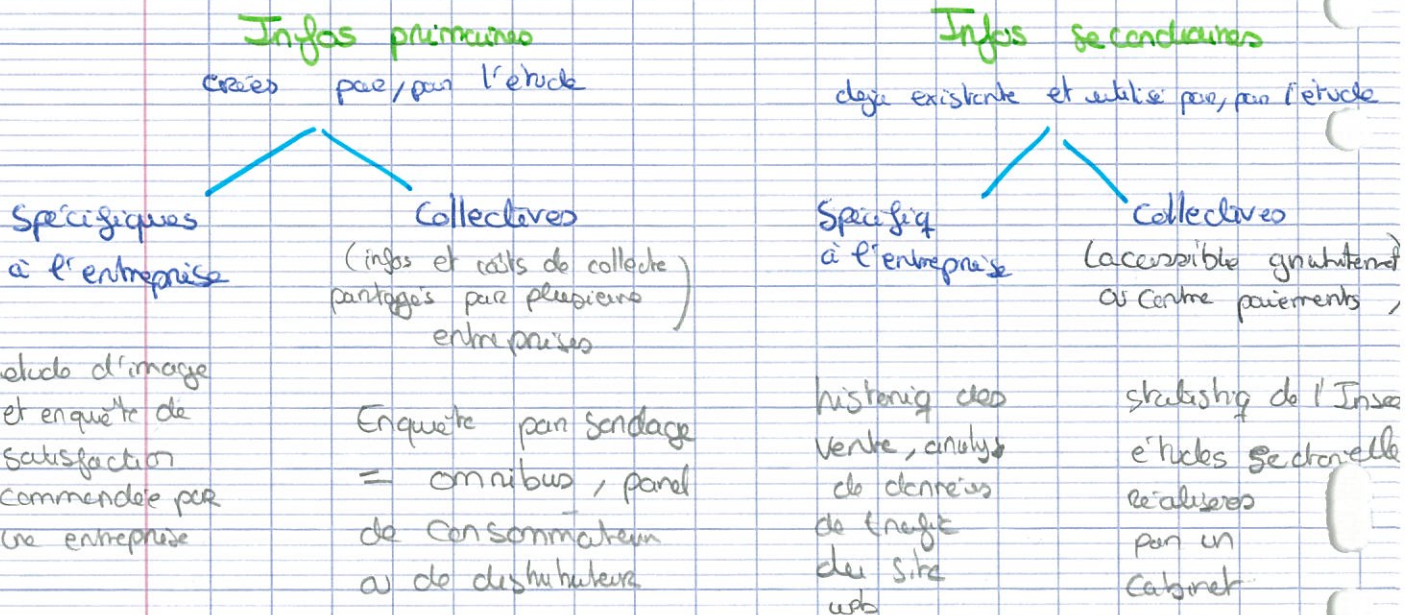 Infos primaires
crées par/pour l'étude
Spécifiques
à l'entreprise
Collectives
(infos et coûts de collecte
partagés par plusieurs
entreprises)
etude d'image
et enquête de
satisfaction
commendée par
une entreprise
Enquête par sondage
= omnibus, panel
de consommateur
ou de distributeur
Infos secondaires
deja existante et utilisé par, pour l'étude
Spécifiq
à l'entreprise
Collectives
(accessible gratuitement
ou contre paiements,
historiq des
vente, analyse
de données
de trafic
du site
web
statistiq de l'Insee
études sectorielle
réalisées
par un
Cabinet